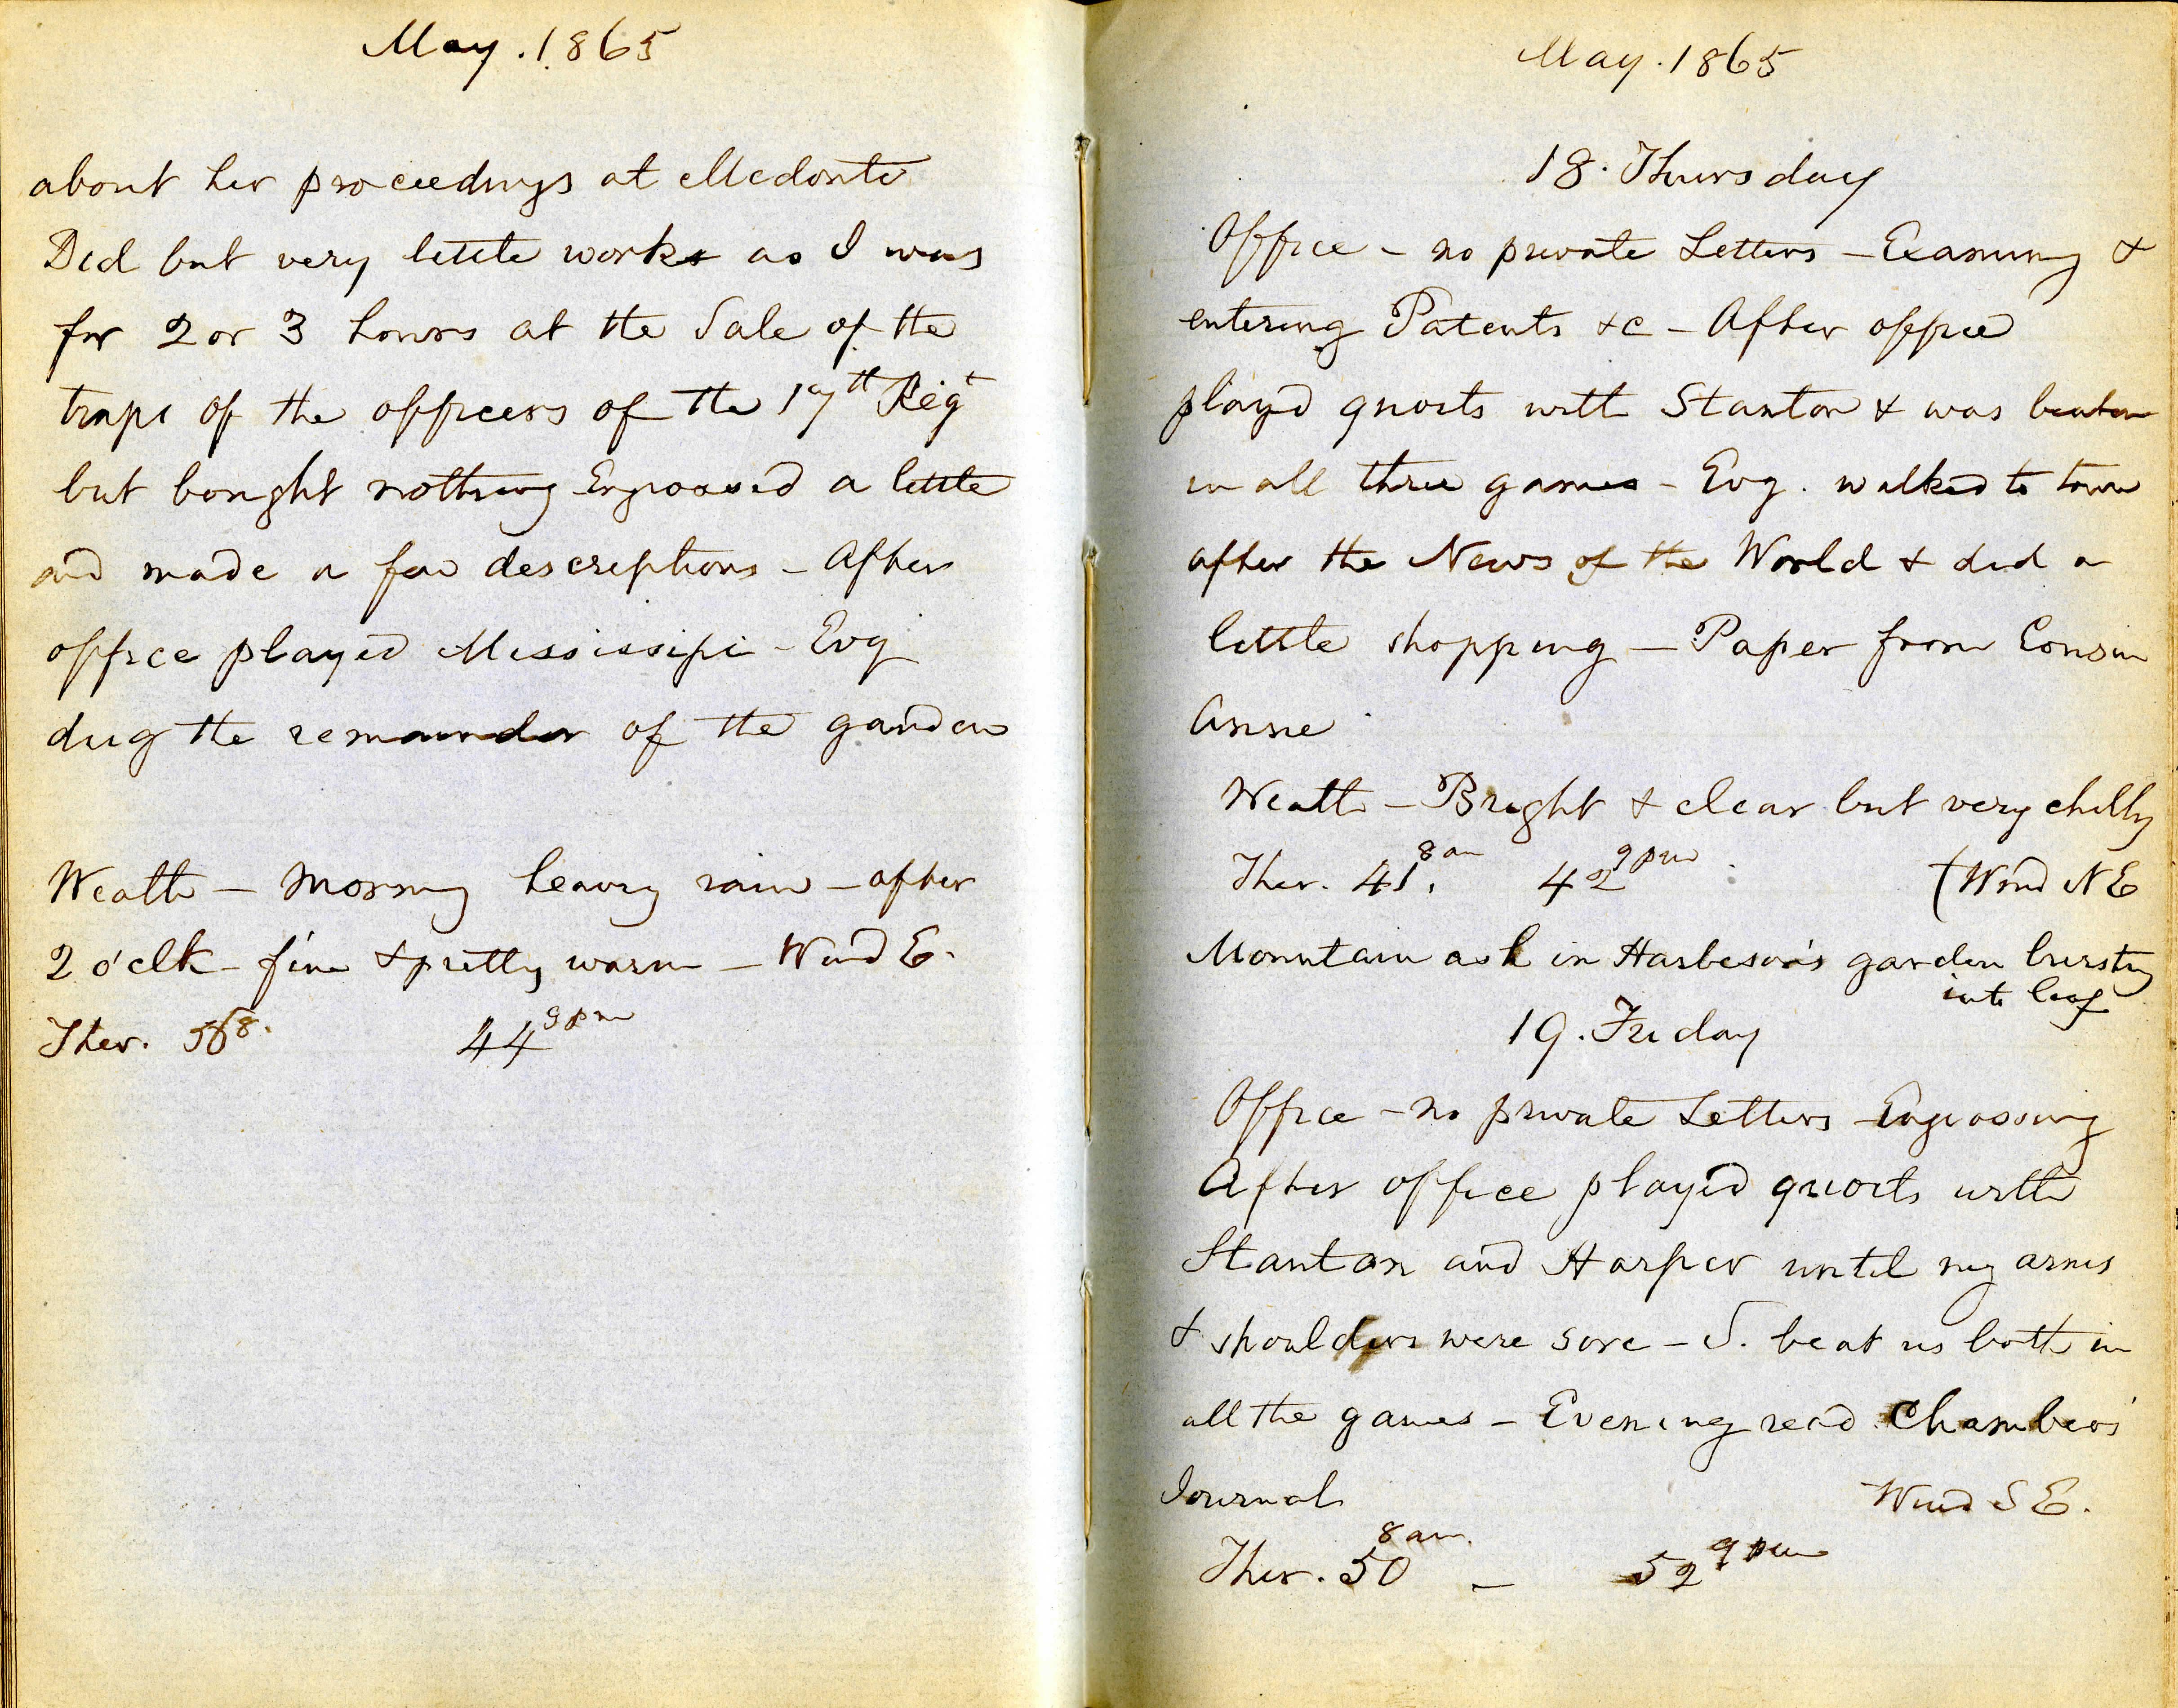 May. 1865
about her proceedings at Medonte
Did but very little work as I was
for 2 or 3 hours at the Sale of the
traps of the officers of the 17th Regt
but bought nothing Engrossed a little
and made a few descriptions - After
office played Mississipi - Evg
dug the remainder of the garden
Weath - Morning heavy rain - after
2 o'clk - fine & pretty warm - Wind E.
Ther. 8. 44 9pm
May. 1865
18. Thursday
Office - no private Letters - Examing &
entering Patents &c - After office
played quoits with Stanton & was beaten
in all three games - Evg. walked to town
after the News of the World & did a
little shopping - Paper from Cousin
Anne
Weath - Bright & clear but very chilly
Ther. 41. 8 am 42 9 pm (Wind N E
Mountain ash in Harbeson's garden bursting
into leaf
19. Friday
Office - no private Letters Engrossing
After office played quoits with
Stanton and Harper until my arms
& shoulders were sore - S. beat us both in
all the games - Evening read Chambers'
Journal Wind S E.
Ther. 50 8 am. - 52 9 pm